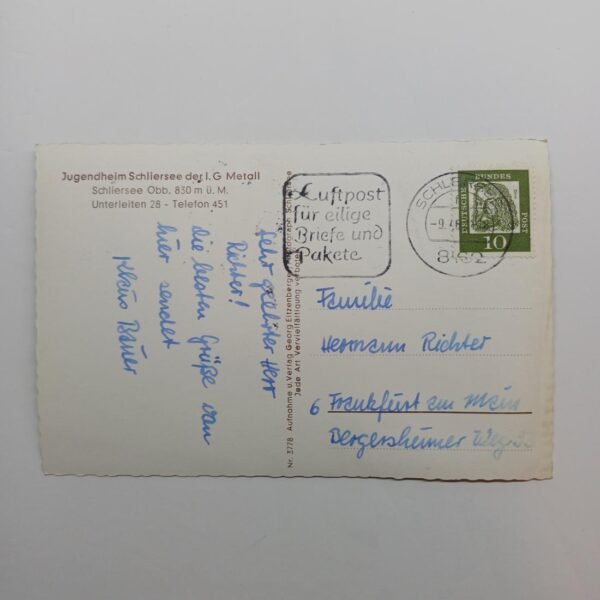 Jugendheim Schliersee der I.G Metall
Schliersee Obb. 830 m ü. M.
Unterleiten 28 - Telefon 451
Sehr geehrter Herr
Richter!
die besten Grüße von
hier sendet
Klaus Bauer
Nr. 3778 Aufnahme u. Verlag Georg Eitzenberger
Jede Art Vervielfältigung verboten
Luftpost
für eilige
Briefe und
Pakete
-9.
DEUTSCHE BUNDESPOST
10
Familie
Hermann Richter
6 Frankfurt am Main